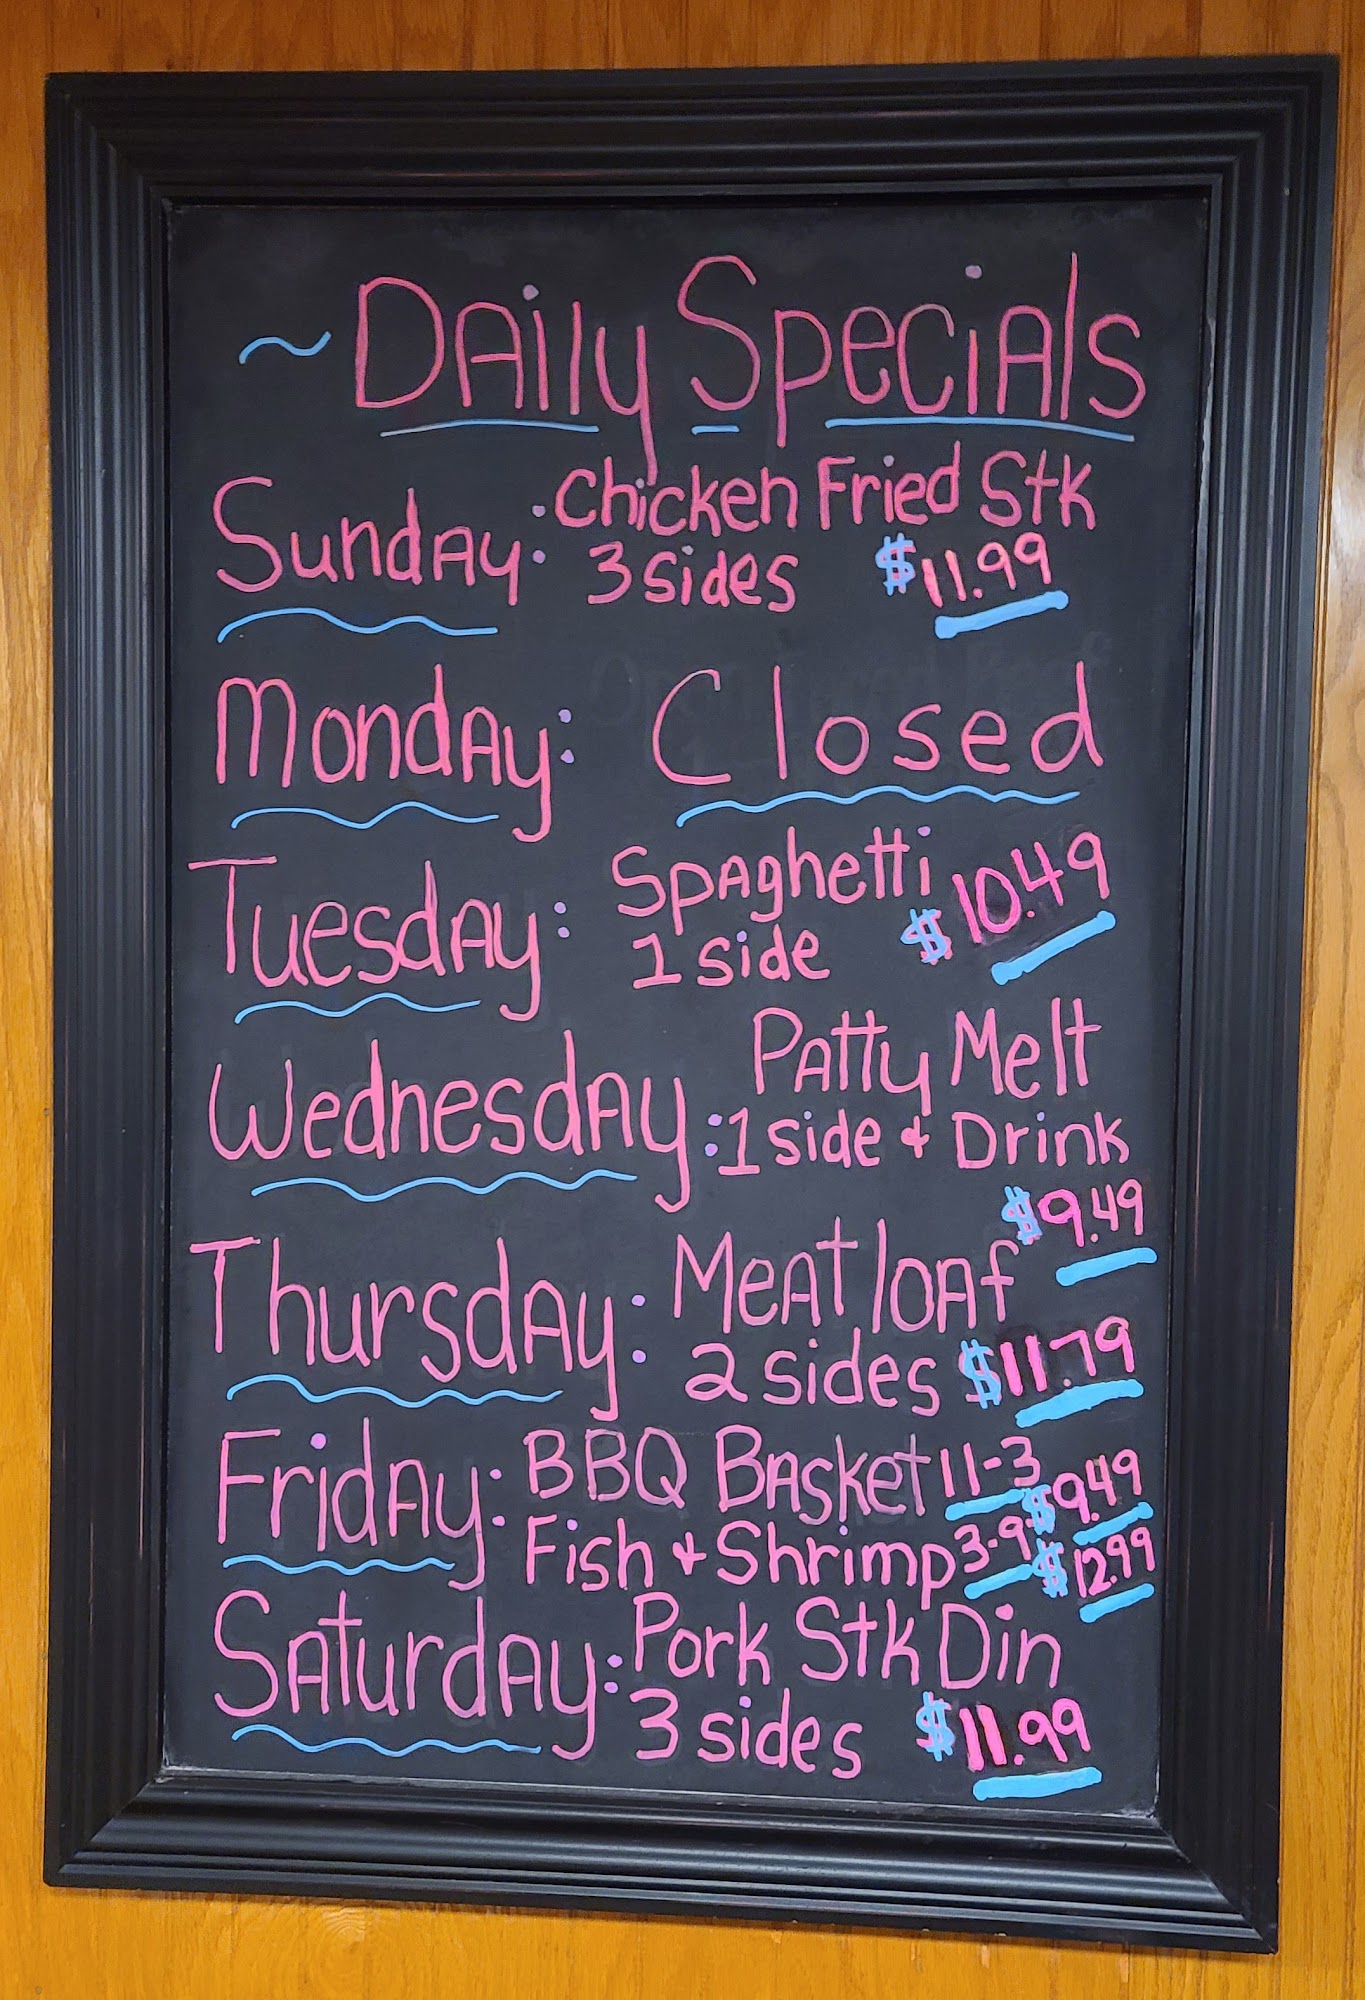 ~ Daily Specials
Sunday: Chicken Fried Stk
3 sides $11.99
Monday: Closed
Tuesday: Spaghetti
1 side $10.49
Wednesday: Patty Melt
1 side + Drink
$9.49
Thursday: Meatloaf
2 sides $11.79
Friday: BBQ Basket 11-3 $9.49
Fish + Shrimp 3-9 $12.99
Saturday: Pork Stk Din
3 sides $11.99